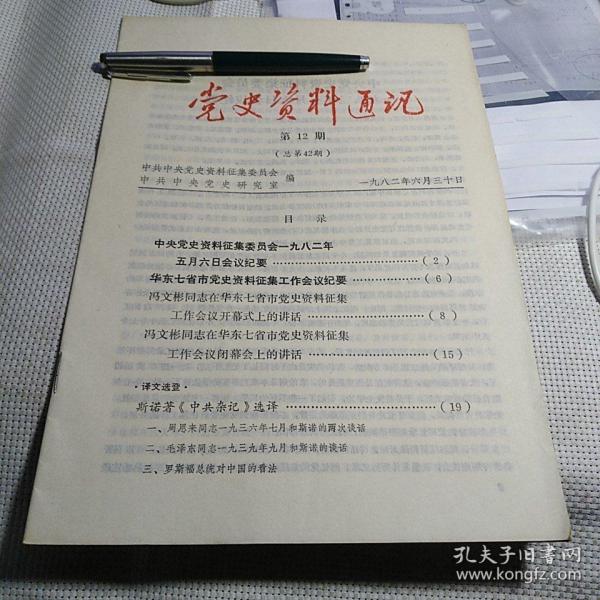 党史资料通讯
第12期
(总第42期)
中共中央党史资料征集委员会
中共中央党史研究室
编
一九八二年六月三十日
目录
中央党史资料征集委员会一九八二年
五月六日会议纪要 ……………………………(2)
华东七省市党史资料征集工作会议纪要 ……………(6)
冯文彬同志在华东七省市党史资料征集
工作会议开幕式上的讲话 ……………………(8)
冯文彬同志在华东七省市党史资料征集
工作会议闭幕会上的讲话 ……………………(15)
·译文选登·
斯诺著《中共杂记》选译 ……………………………(19)
一、周恩来同志一九三六年七月和斯诺的两次谈话
二、毛泽东同志一九三九年九月和斯诺的谈话
三、罗斯福总统对中国的看法
孔夫子旧书网
www.kongfz.com